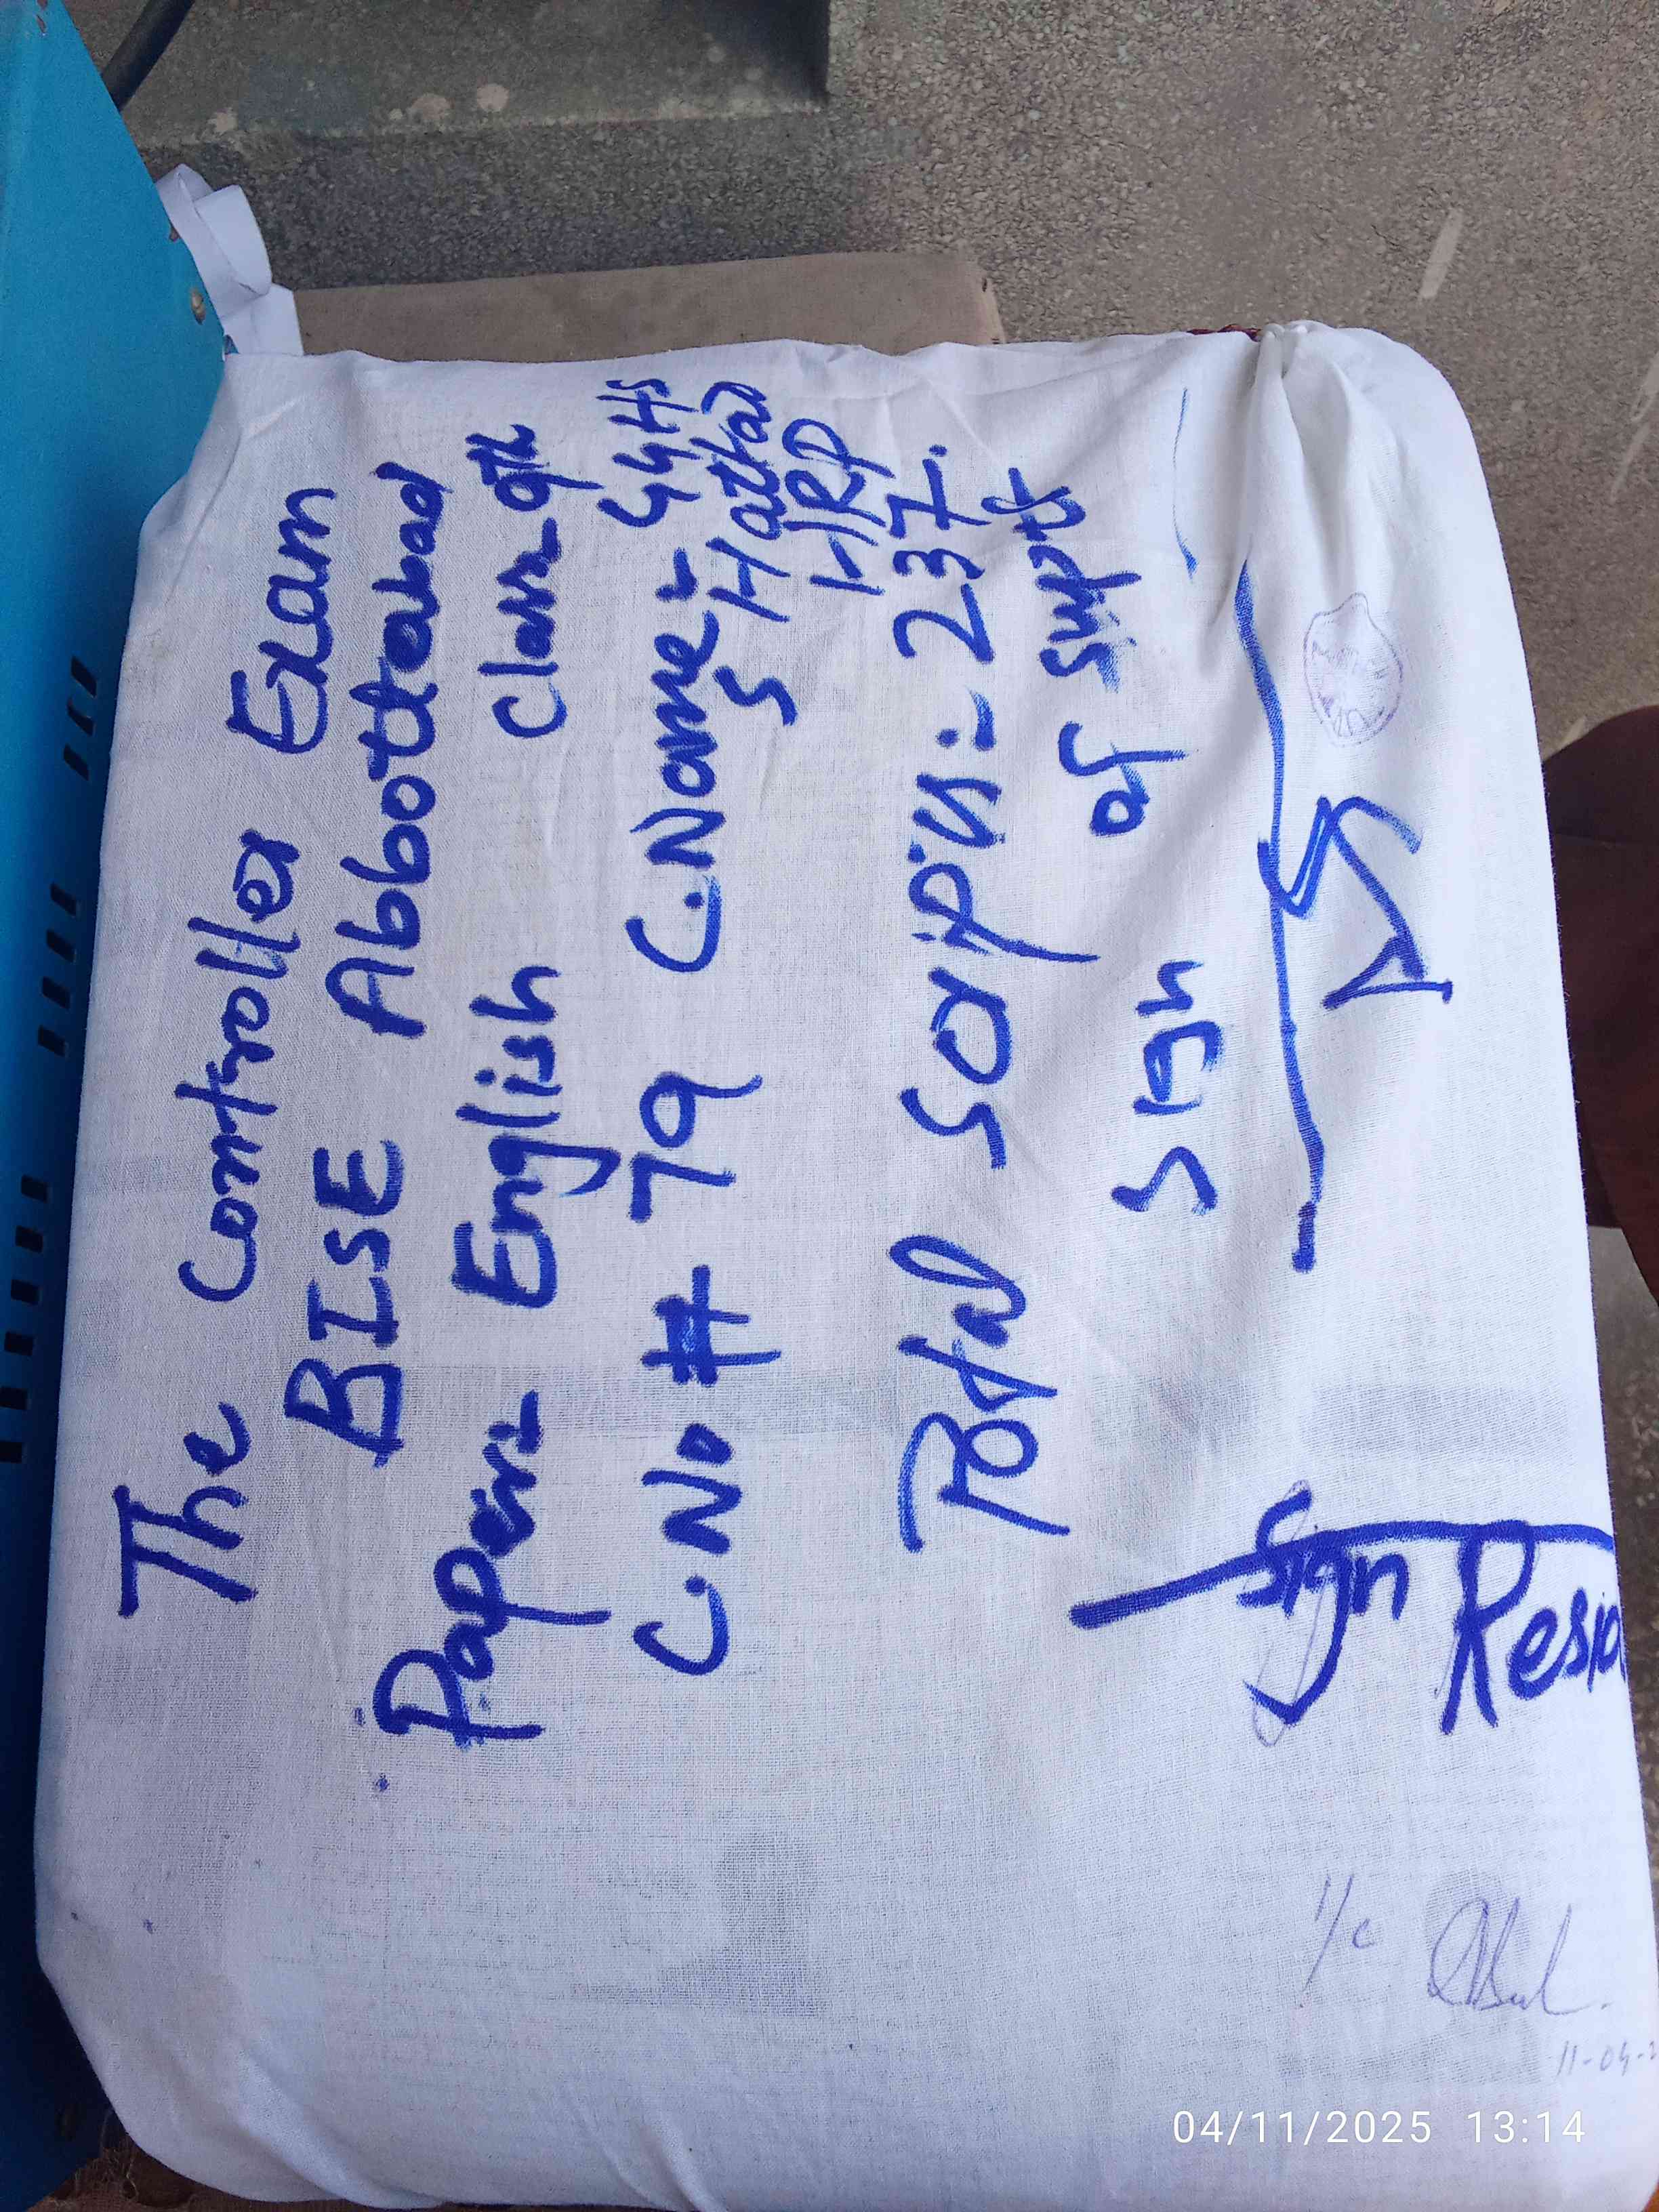 The Controller Exam
BISE Abbottabad
Paper:- English Class-9th
C.No # 79 C.Name:- GGHS
S Hattar
HRP
Total Scripts:- 237.
Sign of Suptt
Sign
Resid
I/c
11-04-2
04/11/2025 13:14